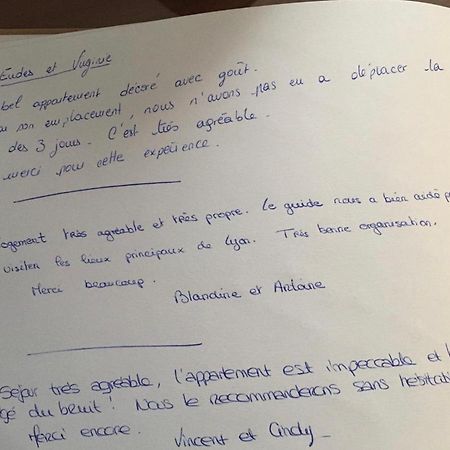 et
bel appartement décoré avec goût.
son emplacement, nous n'avons pas eu a déplacer la
des 3 jours. C'est très agréable.
merci pour cette expérience.
ogement très agréable et très propre. Le guide nous a bien aidé p
visiter les lieux principaux de Lyon. Très bonne organisation.
Merci beaucoup.
Blandine et Antoine
Sejour très agréable, l'appartement est impeccable et b
gé du bruit! Nous le recommanderons sans hésitati
Merci encore.
Vincent et Cindy_